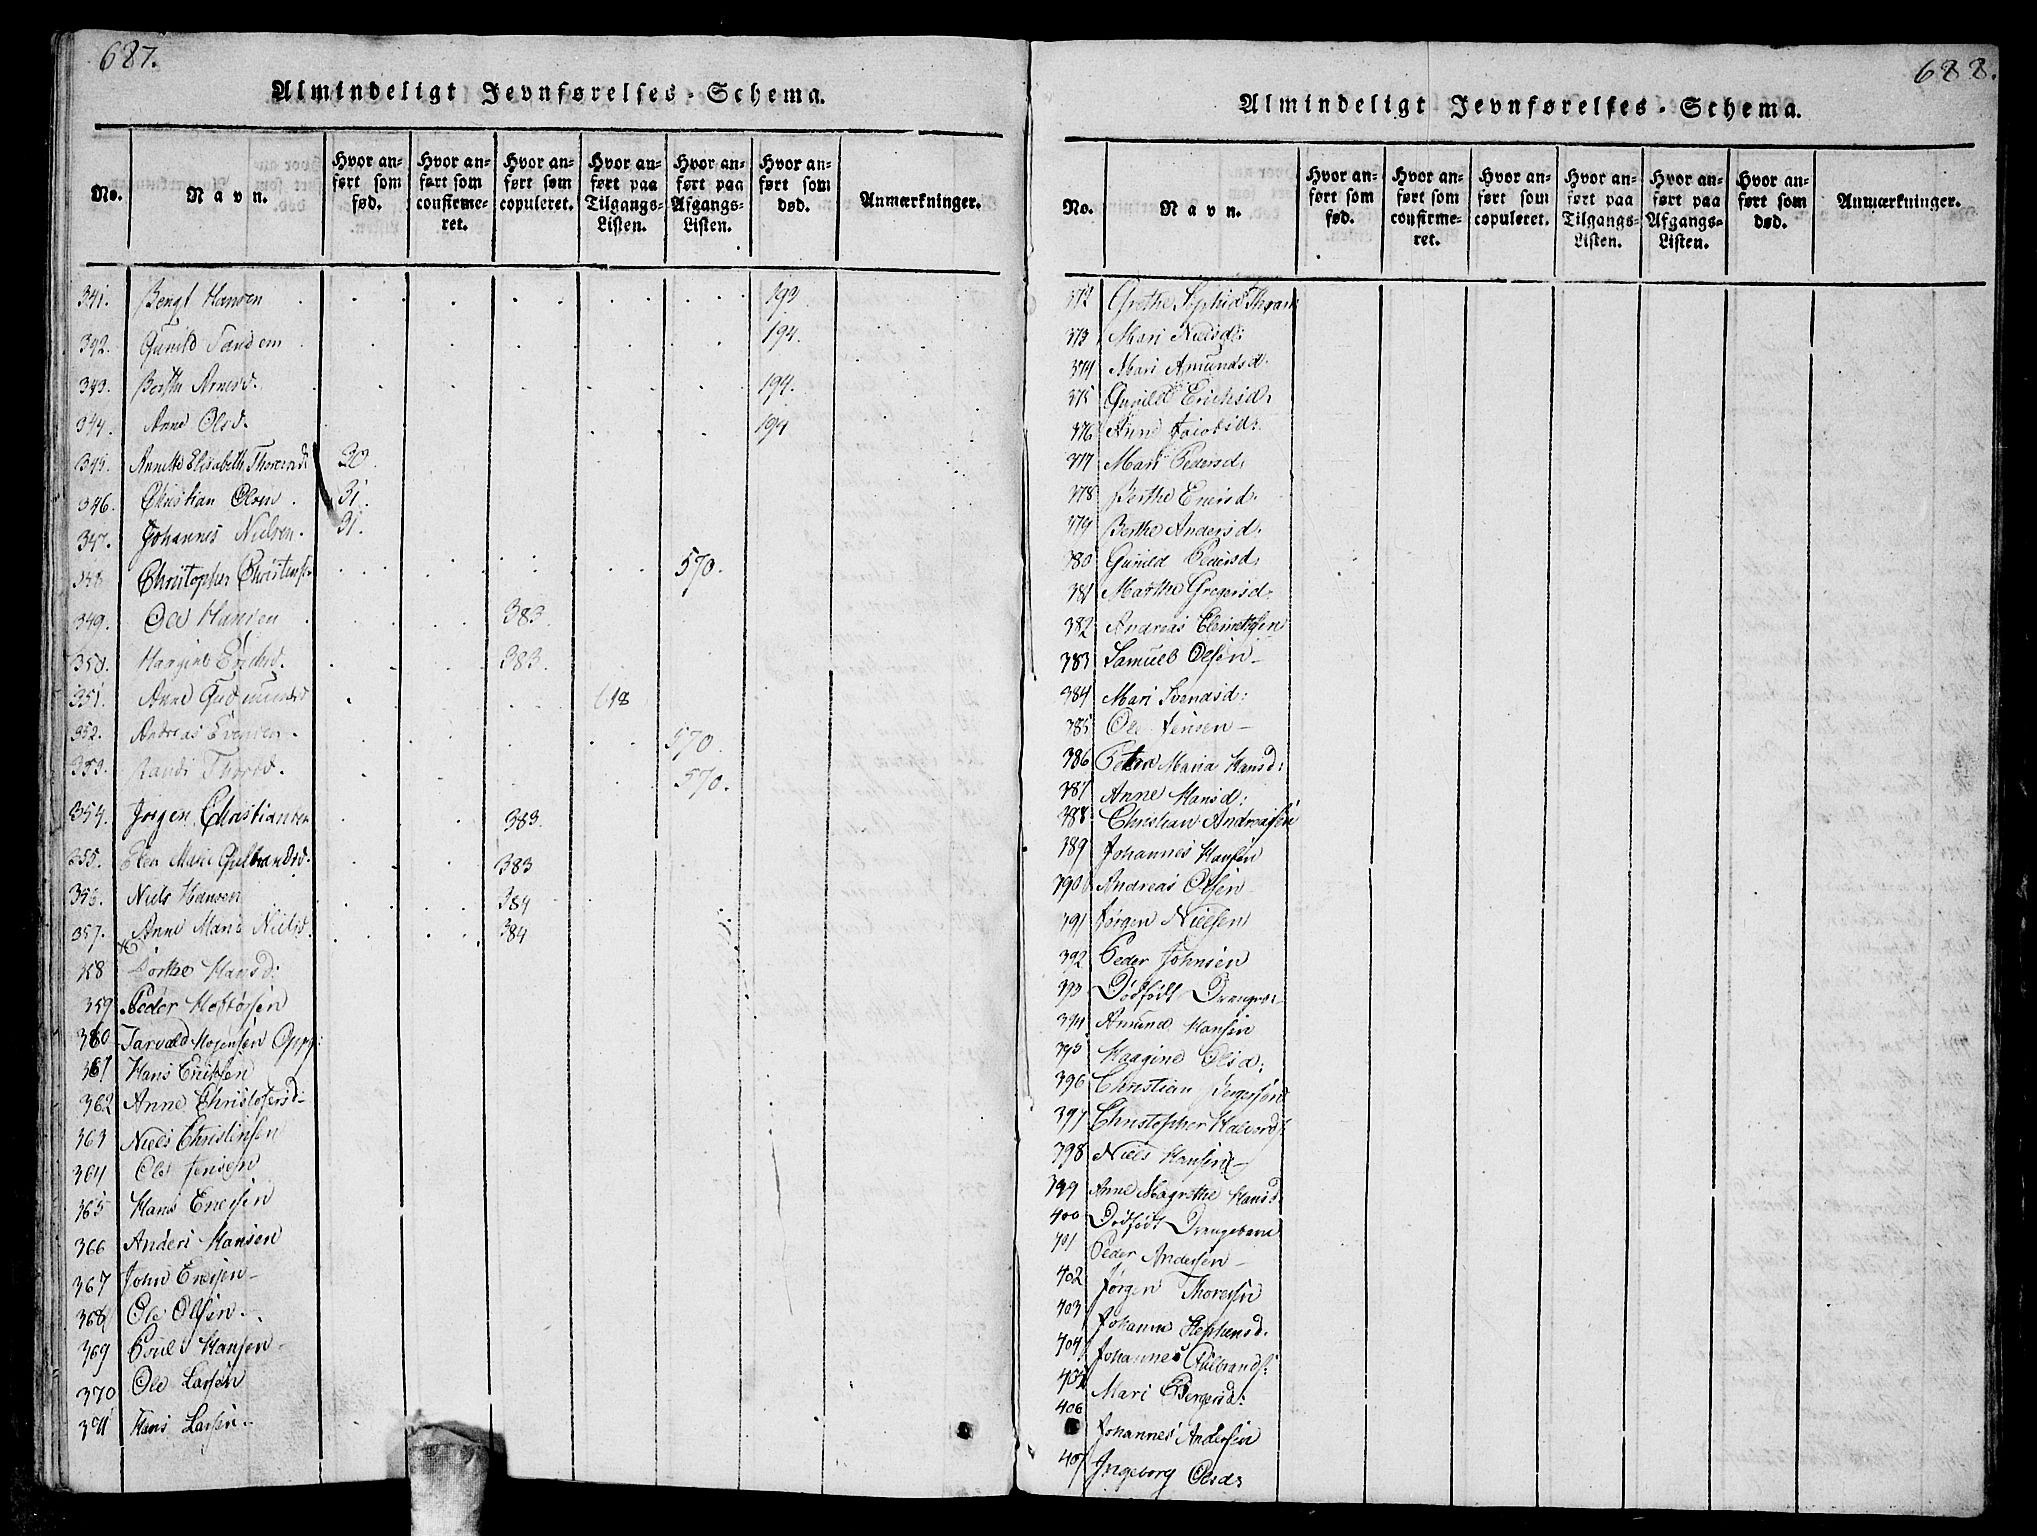 687.
Almindeligt Jevnførelses-Schema.
No. Navn. Hvor anført som fød. Hvor anført som confirmeret. Hvor anført som copuleret. Hvor anført paa Tilgangs-Listen. Hvor anført paa Afgangs-Listen. Hvor anført som død. Anmærkninger.
341. Bengt Hansen 193
342. Gunild Tandem 194.
343. Berthe Arnesd. 194.
344. Anne Olsd. 194
345. Annette Elisabeth Thoresd: 30.
346. Christian Olsen. 31.
347. Johannes Nielsen. 31.
348 Christopher Christens: 570.
349. Ole Hansen 383.
350. Haagine Endersd. 383.
351. Anne Gudmundsd 618
352. Andreas Evensen. 570.
353. Randi Thoresd. 570.
354. Jørgen Christiansen 383.
355. Elen Marie Gulbrandsd. 383
356. Niels Hansen 384
357. Anne Marie Nielsd. 384
358 Dorthe Hansd:
359 Peder
360 Tarvald Mogensen
361 Hans Eriksen
362 Anne Christofersd-
363 Niels Christensen
364 Ole Jensen
365 Hans Enersen
366 Anders Hansen
367 John Enersen-
368 Ole Olsen-.
369 Poul Hansen-
370 Ole Larsen
371 Hans Larsen-
688.
Almindeligt Jevnførelses-Schema.
No. Navn. Hvor anført som fød. Hvor anført som confirmeret. Hvor anført som copuleret. Hvor anført paa Tilgangs-Listen. Hvor anført paa Afgangs-Listen. Hvor anført som død. Anmærkninger.
372 Grethe Sophie Thrane
373 Mari Nielsd:
374 Mari Amundsd.
375 Gunild Erichsd:
376 Anne Jacobsd:
377 Mari Pedersd:
378 Berthe Enersd.
379 Berthe Andersd.
380 Gunild Pedersd:
381 Marthe Gregersd:
382 Andreas Clemetsen
383 Samuel Olsen-
384 Mari Svendsd:
385 Ole Jensen-
386 Petra Maria Hansd:
387 Anne Hansd:
388 Christian Andreasen
389 Johannes Hansen
390 Andreas Olsen
391 Jørgen Nielsen
392 Peder Johnsen
393 Dødfødt
394 Amund Hansen
395 Haagine Olsd:
396 Christian Jørgensen
397 Christopher Halvords:
398 Niels Hansen-
399 Anne Magrethe Hansd.
400 Dødfødt Drengebarn
401 Peder Andersen-
402 Jørgen Thoresen
403 Johanne Stephensd.
404 Johannes Gulbrands:
405 Mari Borgersd:
406 Johannes Andersen
407 Ingeborg Olsd: